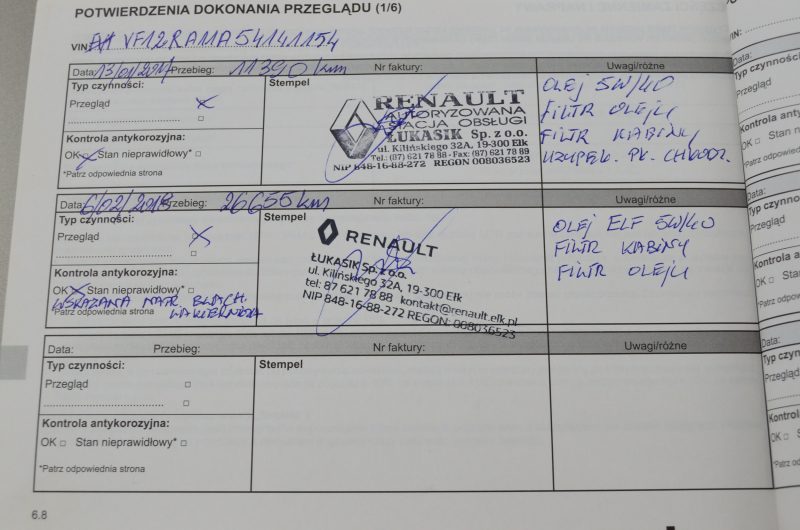 POTWIERDZENIA DOKONANIA PRZEGLĄDU (1/6)
VIN: VF12RAMA54141154
Data: 13/01/2017 Przebieg: 11390 km Nr faktury: Uwagi/różne
Typ czynności:
Przegląd
Kontrola antykorozyjna:
OK Stan nieprawidłowy*
*Patrz odpowiednia strona
Stempel
RENAULT
AUTORYZOWANA
STACJA OBSŁUGI
ŁUKASIK Sp. z o.o.
ul. Kilińskiego 32A, 19-300 Ełk
Tel.: (87) 621 78 88 - Fax: (87) 621 78 89
NIP 848-16-88-272 REGON 008036523
OLEJ 5W/40
FILTR OLEJU
FILTR KABINY
UZUPEŁ. PŁ. CHŁODZ.
Data: 6/02/2018 Przebieg: 26655 km Nr faktury: Uwagi/różne
Typ czynności:
Przegląd
Kontrola antykorozyjna:
OK Stan nieprawidłowy*
WSKAZANA NAPR. BLACH.
LAKIERNICZA
*Patrz odpowiednia strona
Stempel
RENAULT
ŁUKASIK Sp. z o.o.
ul. Kilińskiego 32A, 19-300 Ełk
tel: 87 621 78 88 kontakt@renault.elk.pl
NIP 848-16-88-272 REGON: 008036523
OLEJ ELF 5W/40
FILTR KABINY
FILTR OLEJU
Data: Przebieg: Nr faktury: Uwagi/różne
Typ czynności:
Przegląd
Kontrola antykorozyjna:
OK Stan nieprawidłowy*
*Patrz odpowiednia strona
Stempel
6.8
VIN:
Data:
Typ czynności
Przegląd
Kontrola anty
OK Stan n
*Patrz odpowied
Data:
Typ czynn
Przegląd
Kontrola a
OK Sta
*Patrz odpo
Data:
Typ czyn
Przegląd
Kontrola
OK
*Patrz od